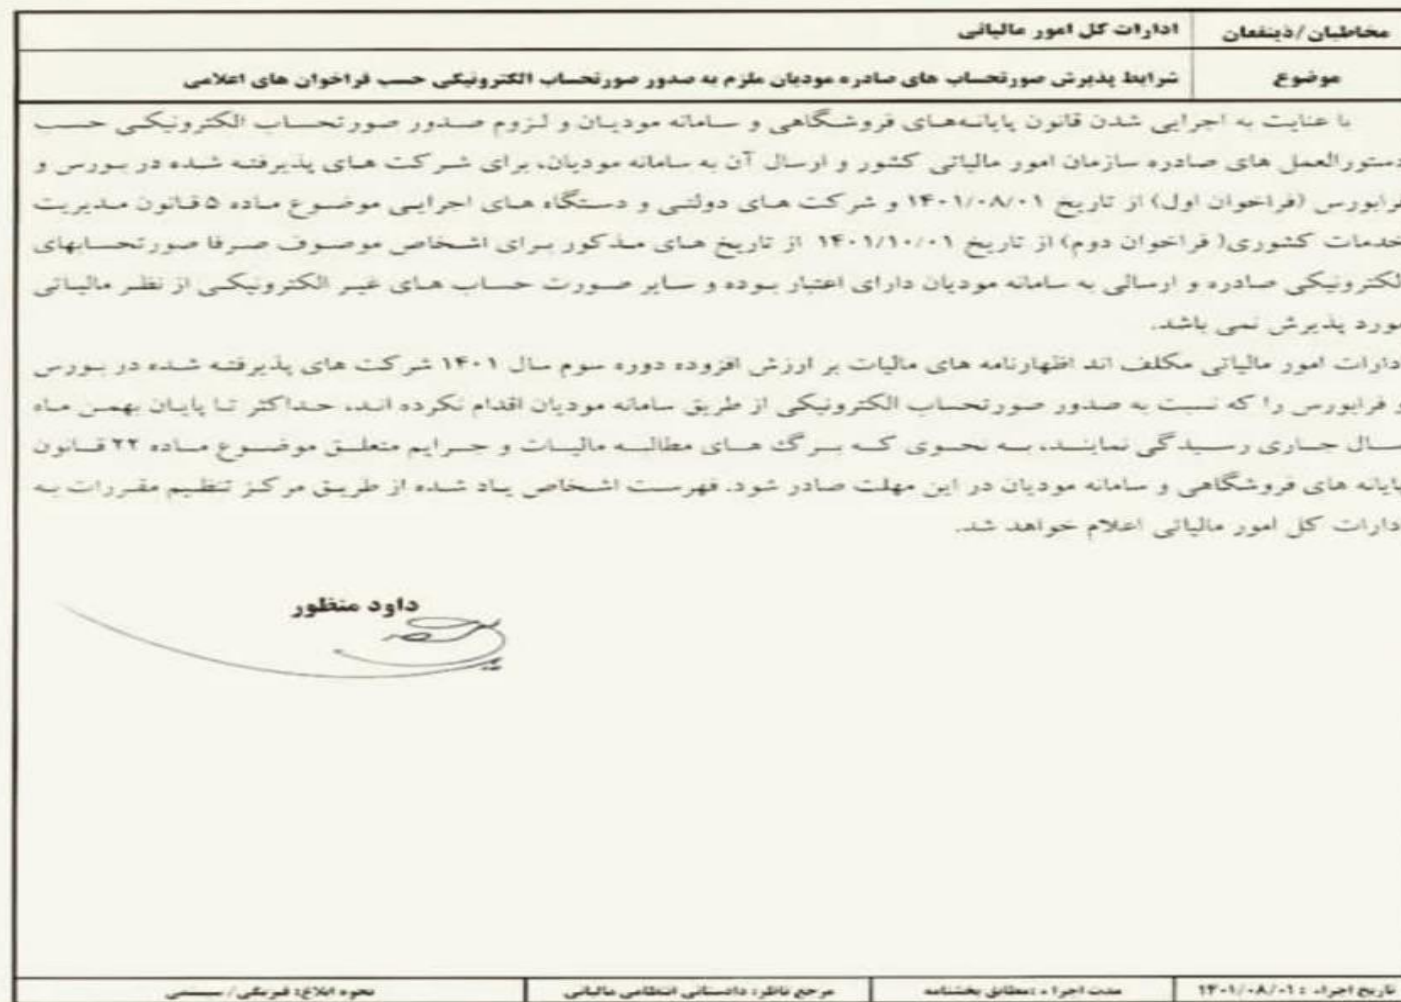 مخاطبان/ذینفعان ادارات کل امور مالیاتی
موضوع شرایط پذیرش صورتحساب های صادره مودیان ملزم به صدور صورتحساب الکترونیکی حسب فراخوان های اعلامی
با عنایت به اجرایی شدن قانون پایانه‌های فروشگاهی و سامانه مودیان و لزوم صدور صورتحساب الکترونیکی حسب
دستورالعمل های صادره سازمان امور مالیاتی کشور و ارسال آن به سامانه مودیان، برای شرکت های پذیرفته شده در بورس و
فرابورس (فراخوان اول) از تاریخ ۱۴۰۱/۰۸/۰۱ و شرکت های دولتی و دستگاه های اجرایی موضوع ماده ۵ قانون مدیریت
خدمات کشوری( فراخوان دوم) از تاریخ ۱۴۰۱/۱۰/۰۱ از تاریخ های مذکور برای اشخاص موصوف صرفا صورتحسابهای
الکترونیکی صادره و ارسالی به سامانه مودیان دارای اعتبار بوده و سایر صورت حساب های غیر الکترونیکی از نظر مالیاتی
مورد پذیرش نمی باشد.
ادارات امور مالیاتی مکلف اند اظهارنامه های مالیات بر ارزش افزوده دوره سوم سال ۱۴۰۱ شرکت های پذیرفته شده در بورس
و فرابورس را که نسبت به صدور صورتحساب الکترونیکی از طریق سامانه مودیان اقدام نکرده اند، حداکثر تا پایان بهمن ماه
سال جاری رسیدگی نمایند، به نحوی که برگ های مطالبه مالیات و جرایم متعلق موضوع ماده ۲۲ قانون
پایانه های فروشگاهی و سامانه مودیان در این مهلت صادر شود. فهرست اشخاص یاد شده از طریق مرکز تنظیم مقررات به
ادارات کل امور مالیاتی اعلام خواهد شد.
داود منظور
تاریخ اجراء : ۱۴۰۱/۰۸/۰۱ مدت اجراء :مطابق بخشنامه مرجع ناظر: دادستانی انتظامی مالیاتی نحوه ابلاغ: فیزیکی/ سیستمی